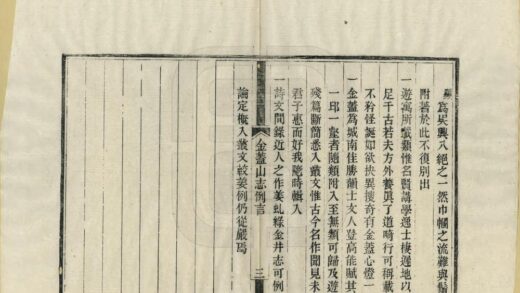 爲吳興八絕之一然巾幗之流雜與
附著於此不復別出
一遊寓所載類惟名賢講學逸士棲遯地以
足千古若夫方外養眞了道畸行可稱載
不矜怪誕如欲挾異搜奇有金蓋心燈一
一金蓋爲城南佳勝韻士文人登高能賦其
一邱一壑者隨類附入至無類可歸及遊
殘篇斷簡悉入叢文惟古今名作聞見未
君子惠而好我隨時輯入
一詩文間錄近人之作姜虬綠金井志可例
論定槪入叢文較姜例仍從嚴焉
金蓋山志例言
三